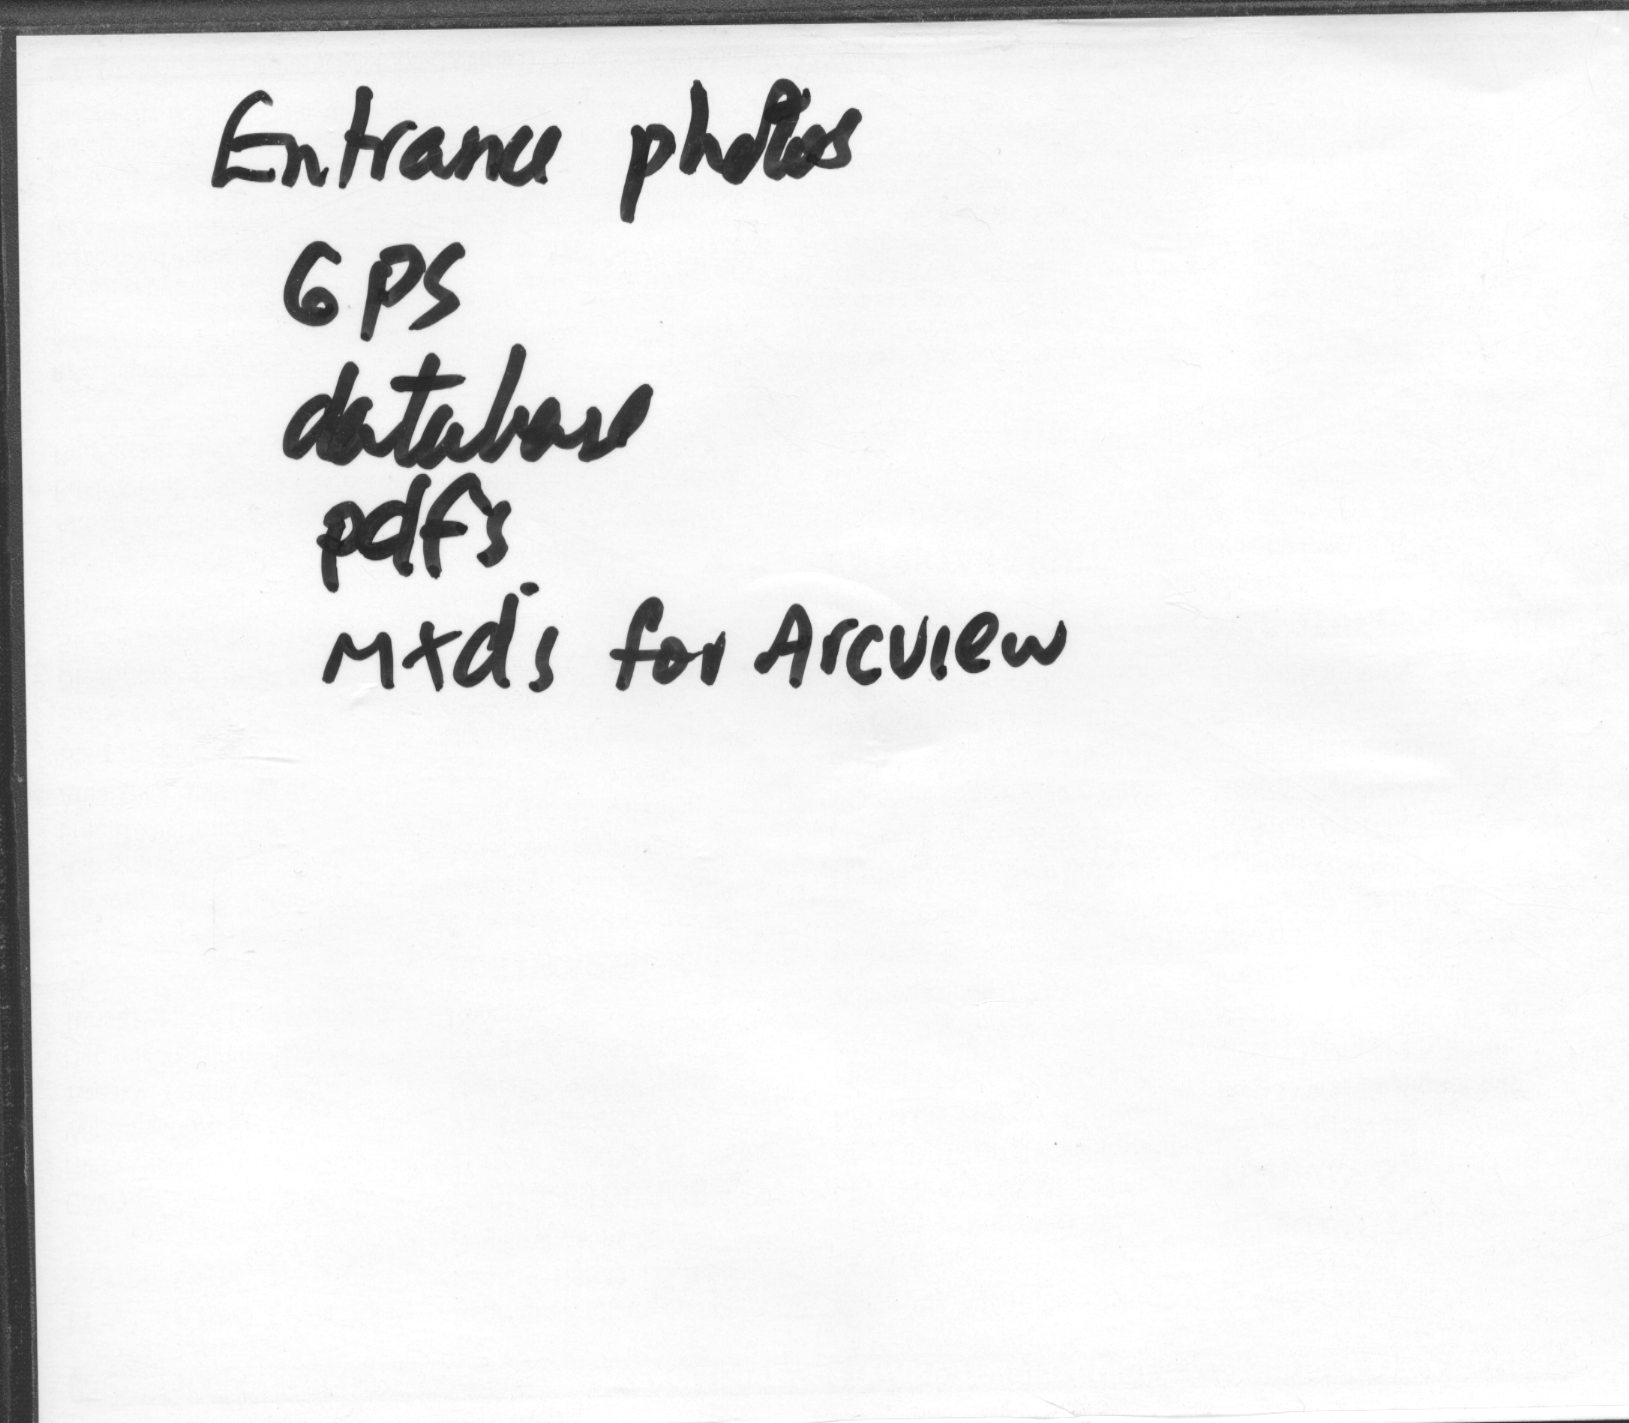 Entrance photos
GPS
database
pdfs
mxd's for Arcview